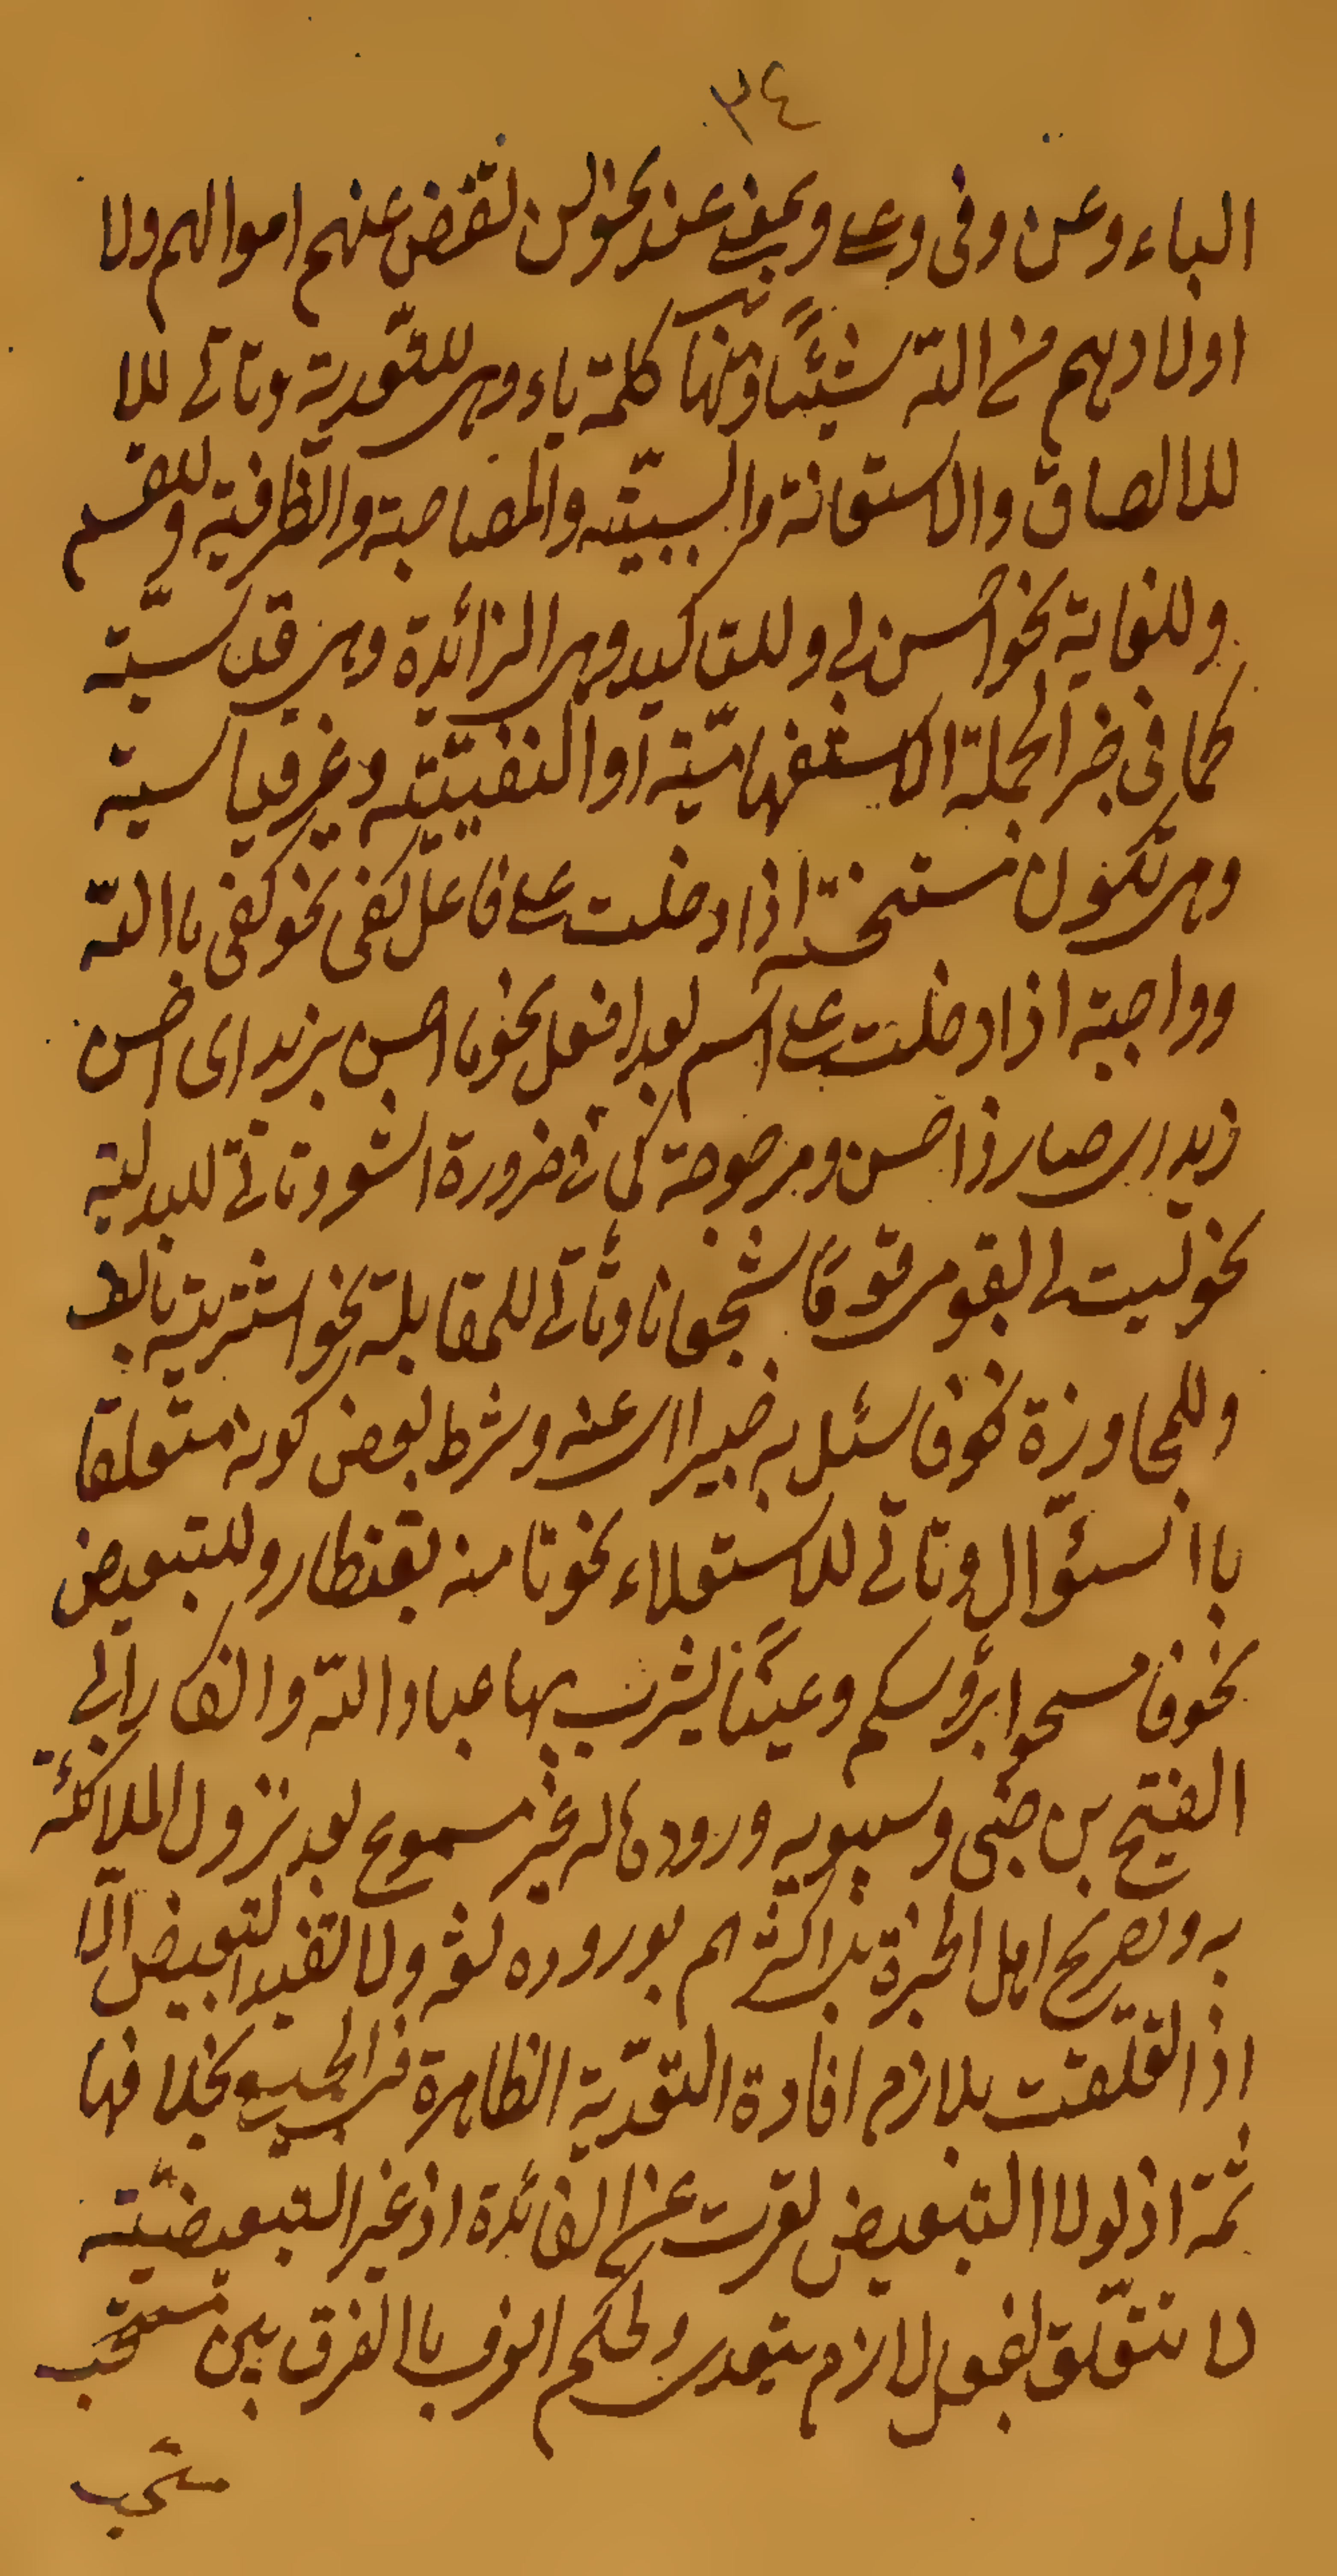 ٣٤
الباء وعن وفى وعلى وبمعنى عند نحو لن تغنى عنهم اموالهم ولا
اولادهم من الله شيئًا ومنها كلمة باء وهى للتّعدية وتاتى للا
للالصاق والاستعانة والسببيّته والمصاحبة والظرفية وللقسم
وللغاية نحو احسن بى وللتاكيد وهى الزائدة وهى قياسيّته
كما فى خبر الجملة الاستفهاميّة او المنفيّته وغير قياسية
وهى تكون مستحسنة اذا دخلت على فاعل كفى نحو كفى باالله
وواجبة اذا دخلت على اسم بعد افعل نحو ما احسن بزيد اى احسن
زيد اى صار ذا حسن ومرجوحة كما فى ضرورة الشعر وتاتى للبدلية
نحو ليت لى بقوم قومًا شجعانا وتأتى للمقابلة نحو اشتريته بالف
وللمجاوزة نحو فاسئل به خبيرا اى عنه وشرط بعض كونه متعلقا
باالسئوال وتاتى للاستعلاء نحو تامنه بقنطار وللتبعيض
نحو فامسحوا برؤسكم وعينًا يشرب بها عباد الله وانكار ابى
الفتح بن جنى وسيبويه ورودها له غير مسموع بعد نزول الملائكة
به وتصريح اهل الخبرة بل اكثرهم بوروده لغة ولا تفيد التبعيض الّا
اذا تعلقت بلازم افادة التعدّية الظاهرة فى الجميع بخلافها
ثمة اذ لولا التبعيض لعرت عن الفائدة اذ غير التبعيضيّته
لا تتعلّق بفعل لازم يتعدى ولحكم العرف باالفرق بين مسحت
مسحت